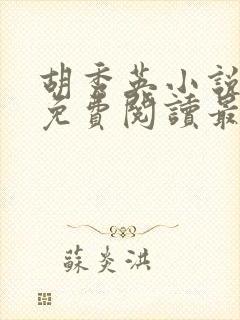 胡秀英小說
免費閱讀最
蘇炎洪